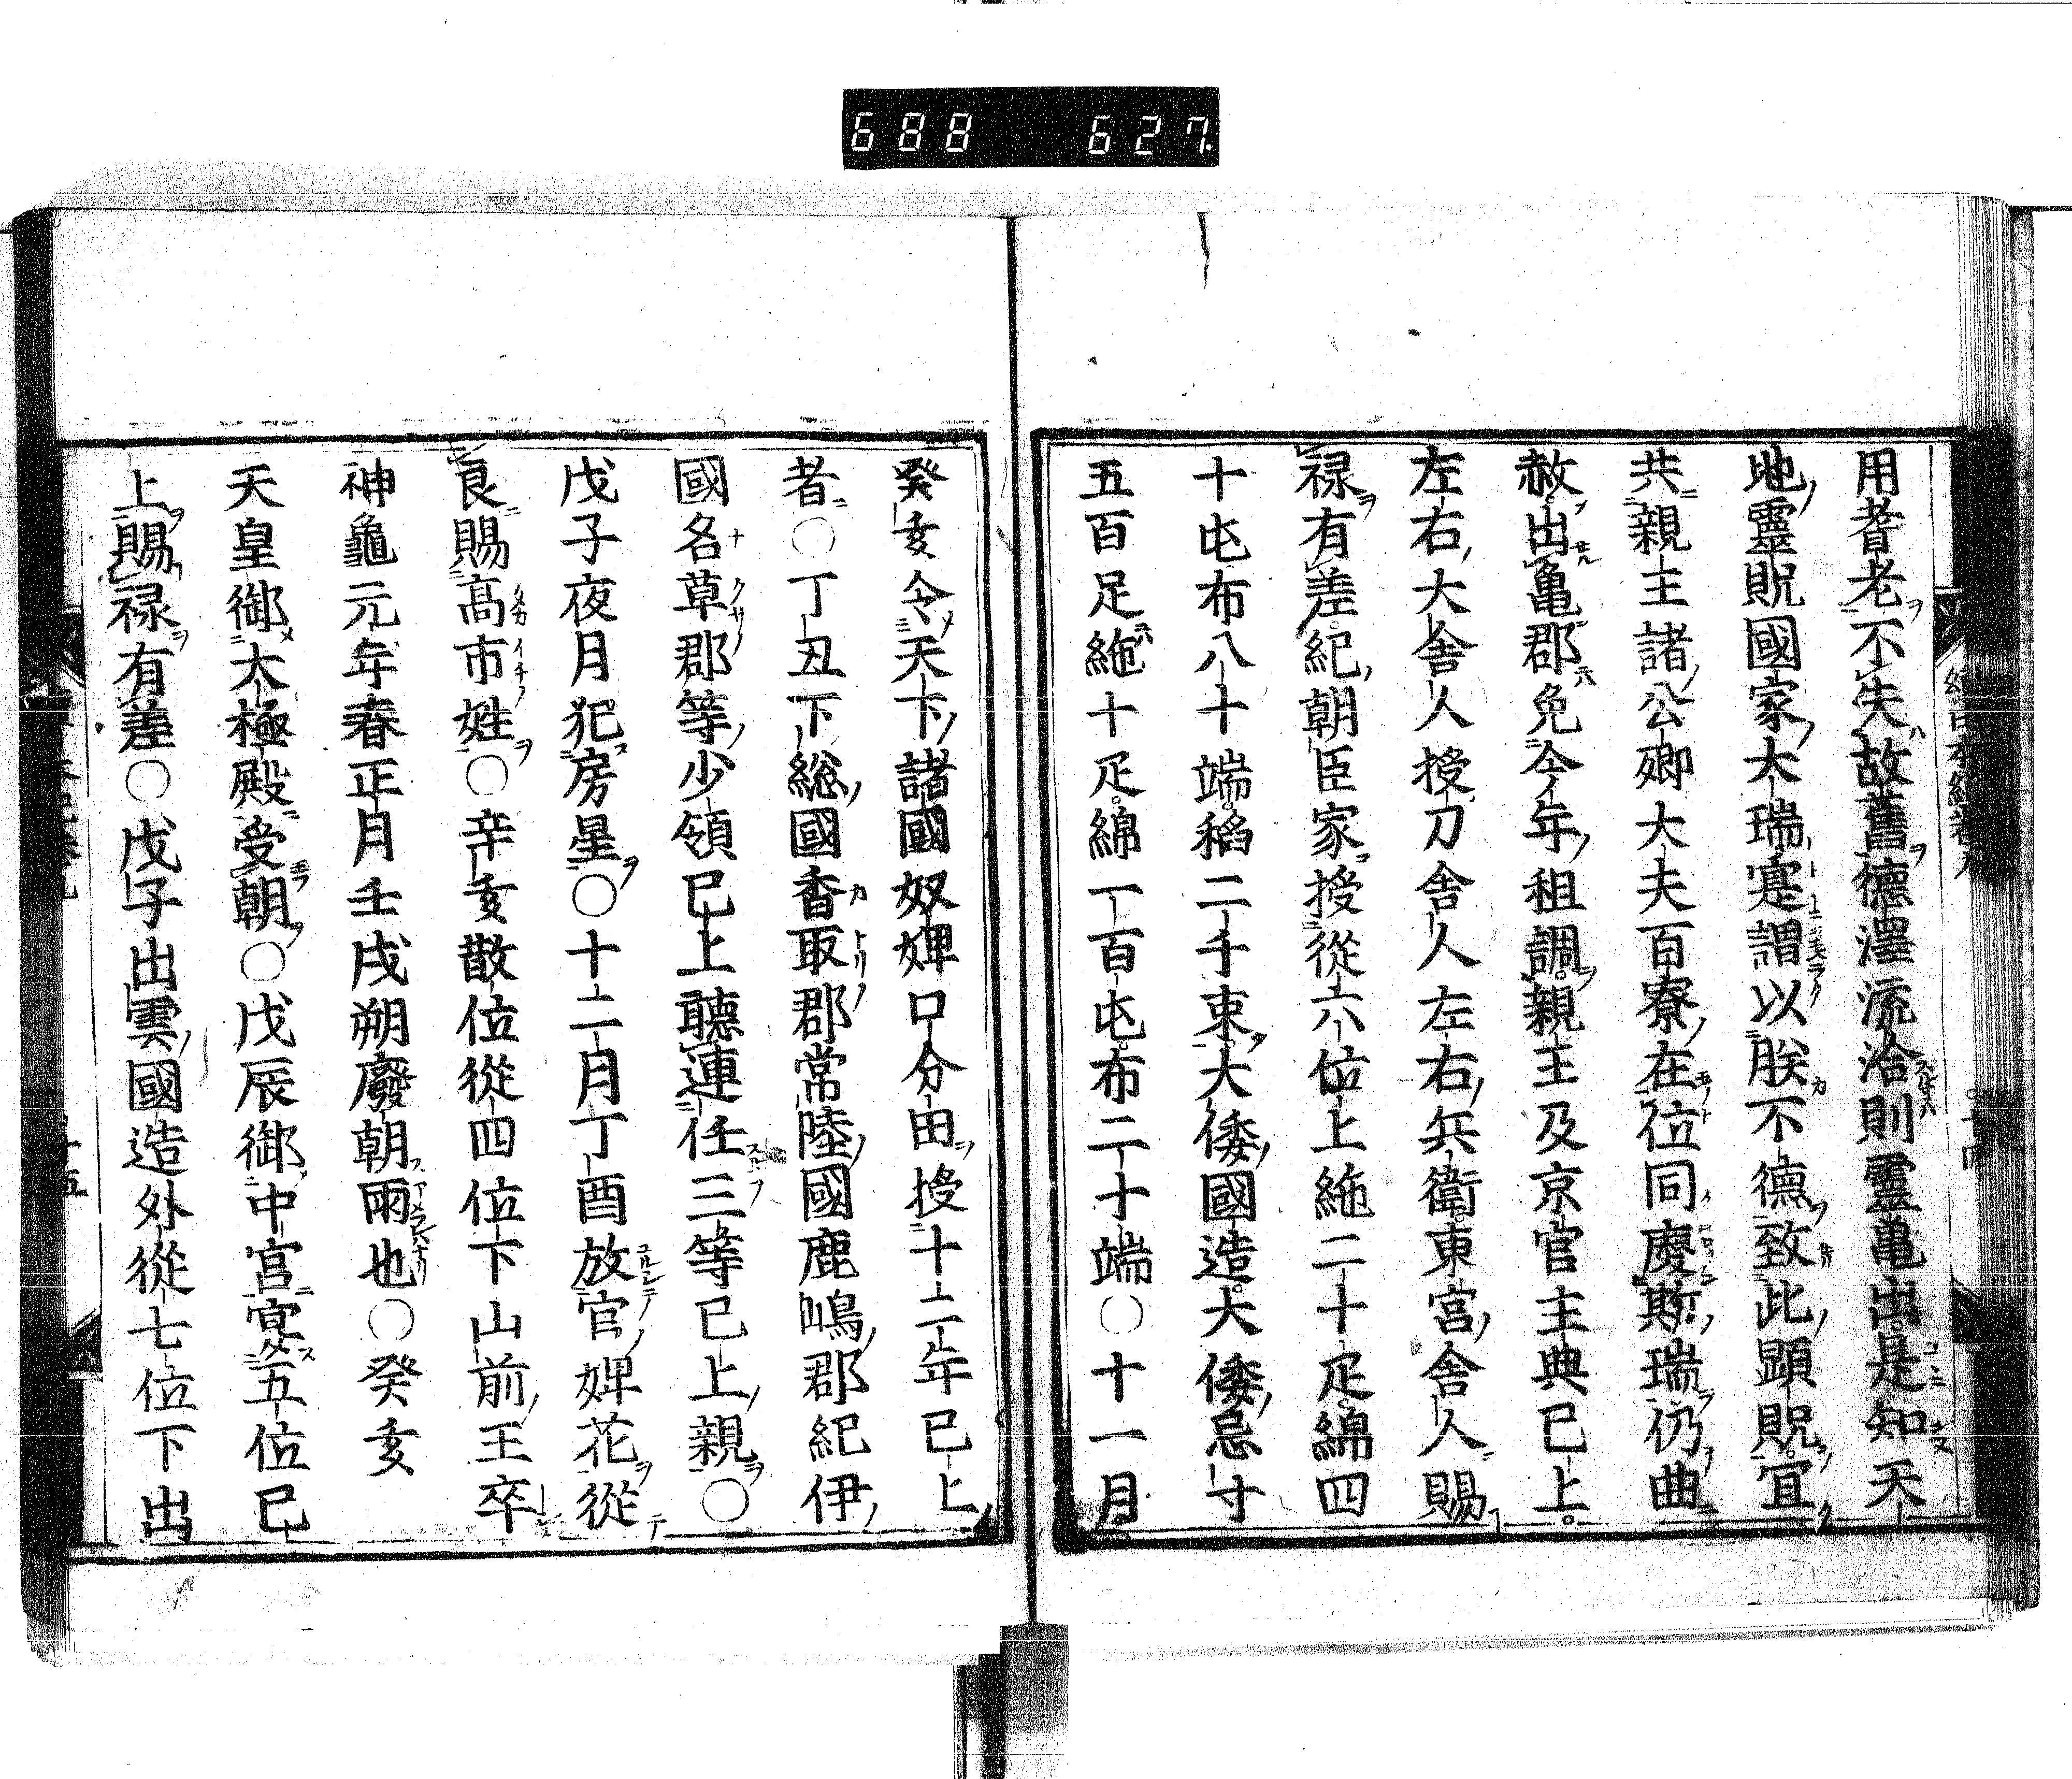 688 627.
用耆老不失故舊德澤流洽則靈亀出是知天
地靈貺國家大瑞寔謂以朕不德致此顯貺宜
共親王諸公卿大夫百寮在位同慶斯瑞仍曲
赦出亀郡免今年租調親王及京官主典已上
左右大舎人授刀舎人左右兵衛東宮舎人賜
禄有差紀朝臣家授從六位上絁二十疋綿四
十屯布八十端稻二千束大倭國造大倭忌寸
五百足絁十疋綿一百屯布二十端〇十一月
癸亥令天下諸國奴婢口分田授十二年已上
者〇丁丑下総國香取郡常陸國鹿嶋郡紀伊
國名草郡等少領已上聽連任三等已上親〇
戊子夜月犯房星〇十二月丁酉放官婢花從
良賜高市姓〇辛亥散位從四位下山前王卒
神龜元年春正月壬戌朔廢朝雨也〇癸亥
天皇御太極殿受朝〇戊辰御中宮宴五位已
上賜禄有差〇戊子出雲國造外從七位下出